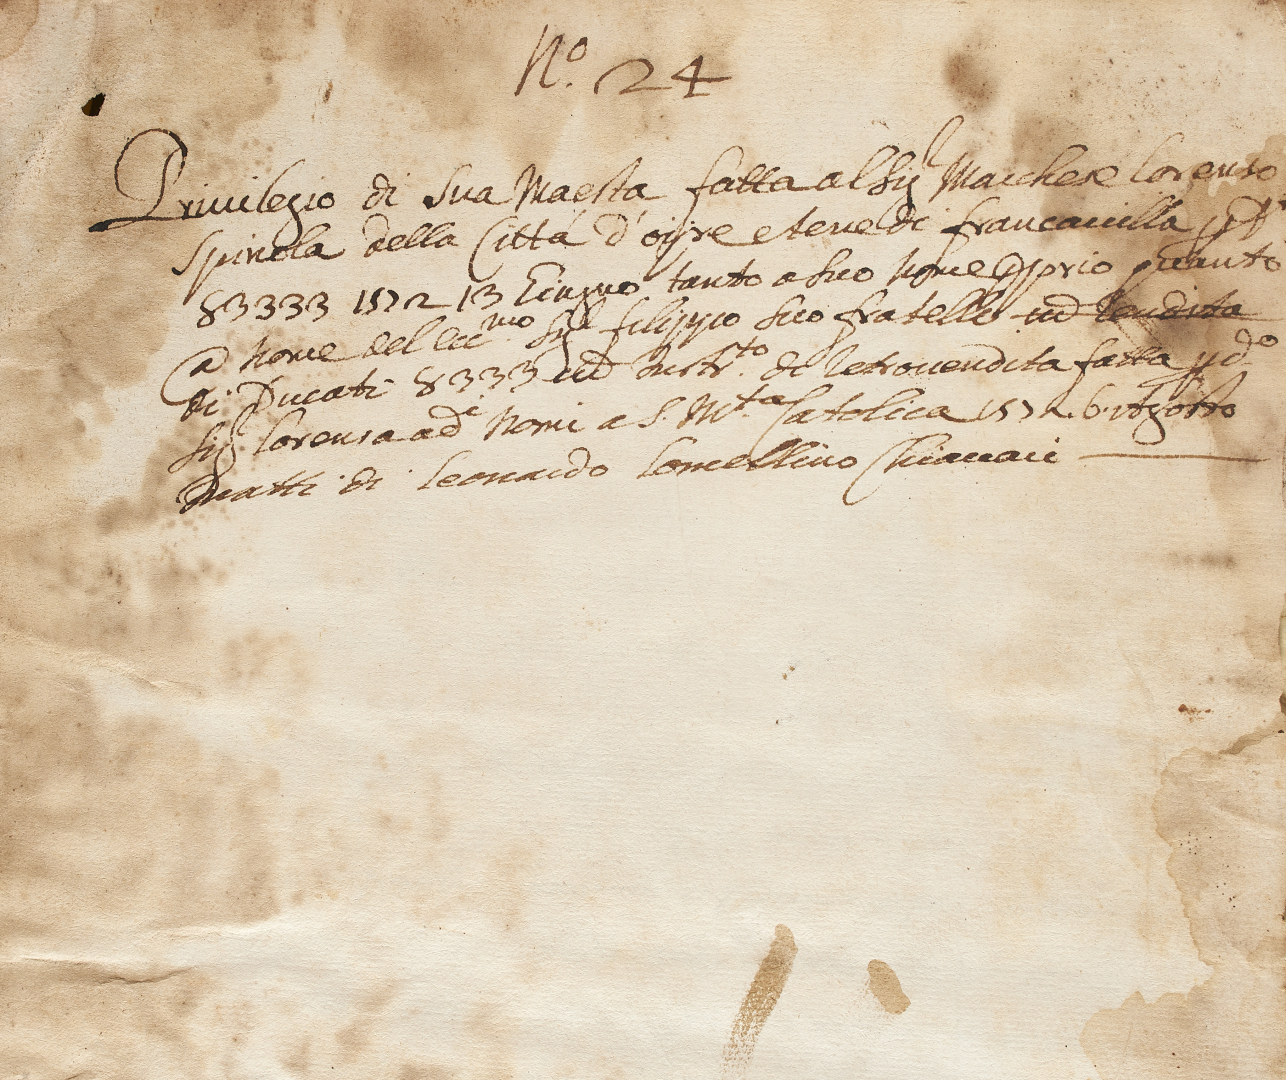 N.º 24
Privilegio di Sua Maesta fatta al Sig.r Marchese Lorenso
Spinola della Città d'oyre e terre di francavilla p D.ti
83333 1572 13 Giugno tanto a suo nome pprio quanto
a nome del ecc.mo Sig.r filippo suo fratello
di Ducati 8333 Instr.to di retrovendita fatta p d.º
Sig.r Lorensa a d.i nomi a S. M.ta Catolica 1572. 6. Agosto
in atti di Leonardo Lomellino Chiavari